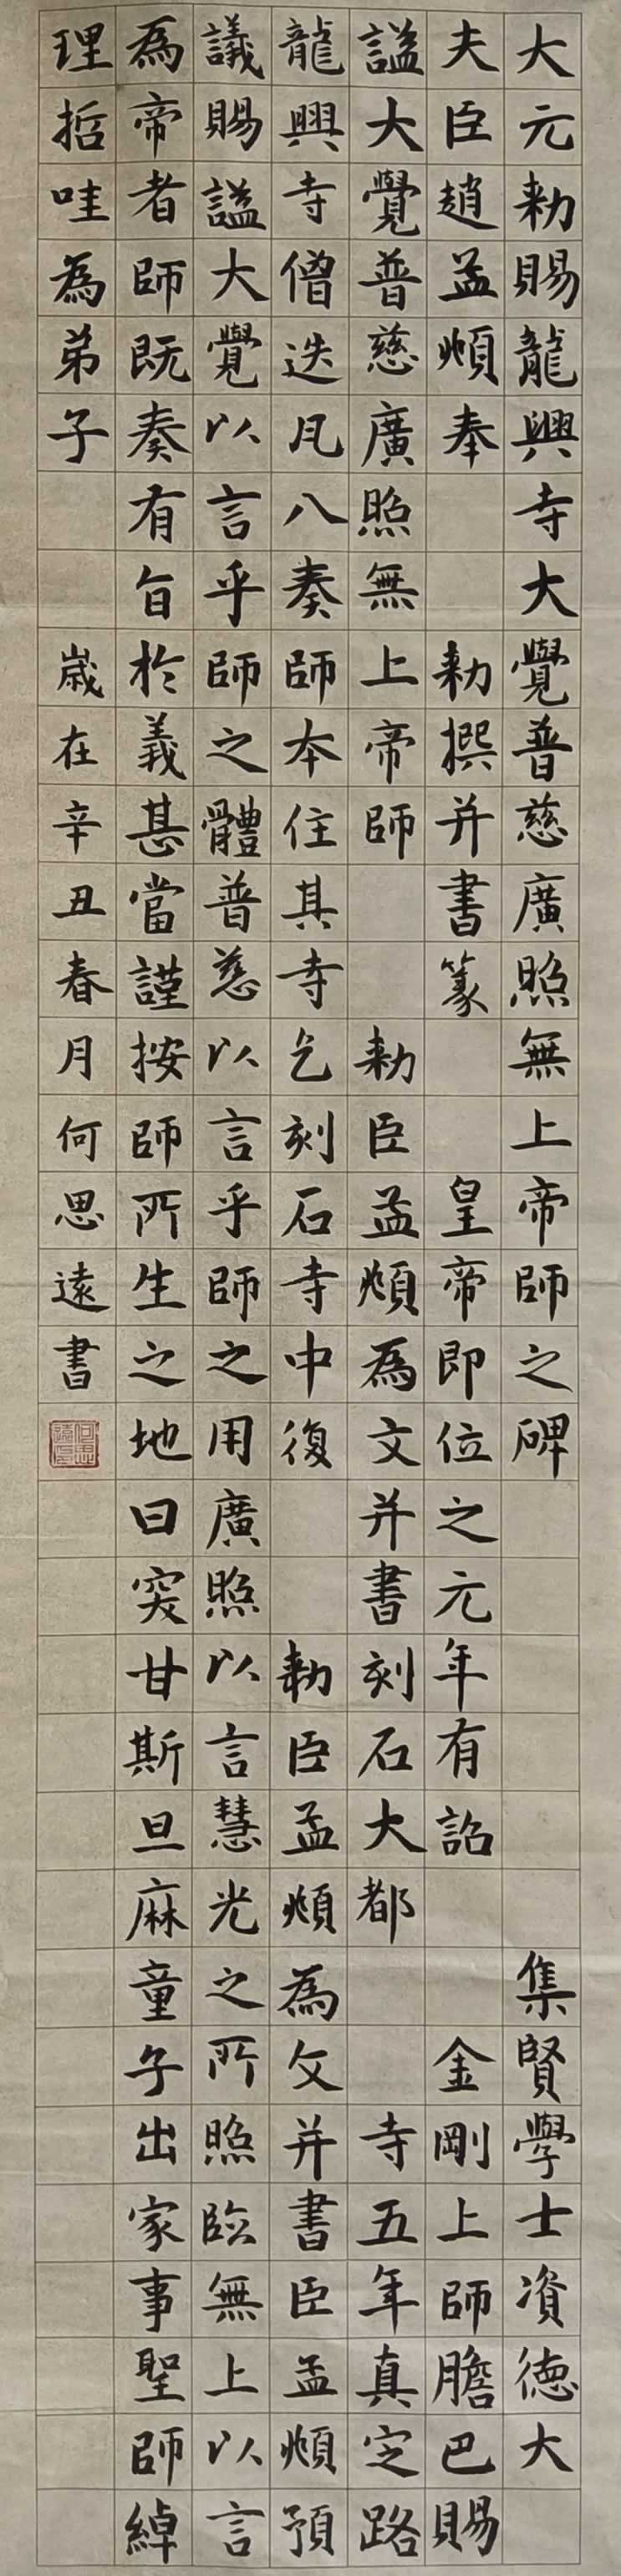 大元敕賜龍興寺大覺普慈廣照無上帝師之碑 集賢學士資德大
夫臣趙孟頫奉 敕撰并書篆 皇帝即位之元年有詔 金剛上師膽巴賜
謚大覺普慈廣照無上帝師 敕臣孟頫為文并書刻石大都 寺五年真定路
龍興寺僧迭凡八奏師本住其寺乞刻石寺中復 敕臣孟頫為文并書臣孟頫預
議賜謚大覺以言乎師之體普慈以言乎師之用廣照以言慧光之所照臨無上以言
為帝者師既奏有旨於義甚當謹按師所生之地曰突甘斯旦麻童子出家事聖師綽
理哲哇為弟子 歲在辛丑春月何思遠書